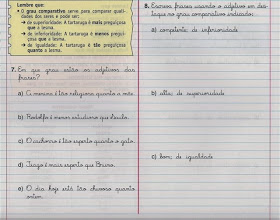 Lembre que:
O grau comparativo serve para comparar quali-
dades dos seres e pode ser:
→ de superioridade: A tartaruga é mais preguiçosa
que a lesma.
→ de inferioridade: A tartaruga é menos pregui-
çosa que a lesma.
→ de igualdade: A tartaruga é tão preguiçosa
quanto a lesma.
7. Em que grau estão os adjetivos das
frases?
a) A menina é tão religiosa quanto a mãe.
b) Rodolfo é menos estudioso que Paulo.
c) O cachorro é tão esperto quanto o gato.
d) Tiago é mais esperto que Bruno.
e) O dia hoje está tão chuvoso quanto
ontem.
8. Escreva frases usando o adjetivo em des-
taque no grau comparativo indicado:
a) competente: de inferioridade
b) alta: de superioridade
c) bom: de igualdade